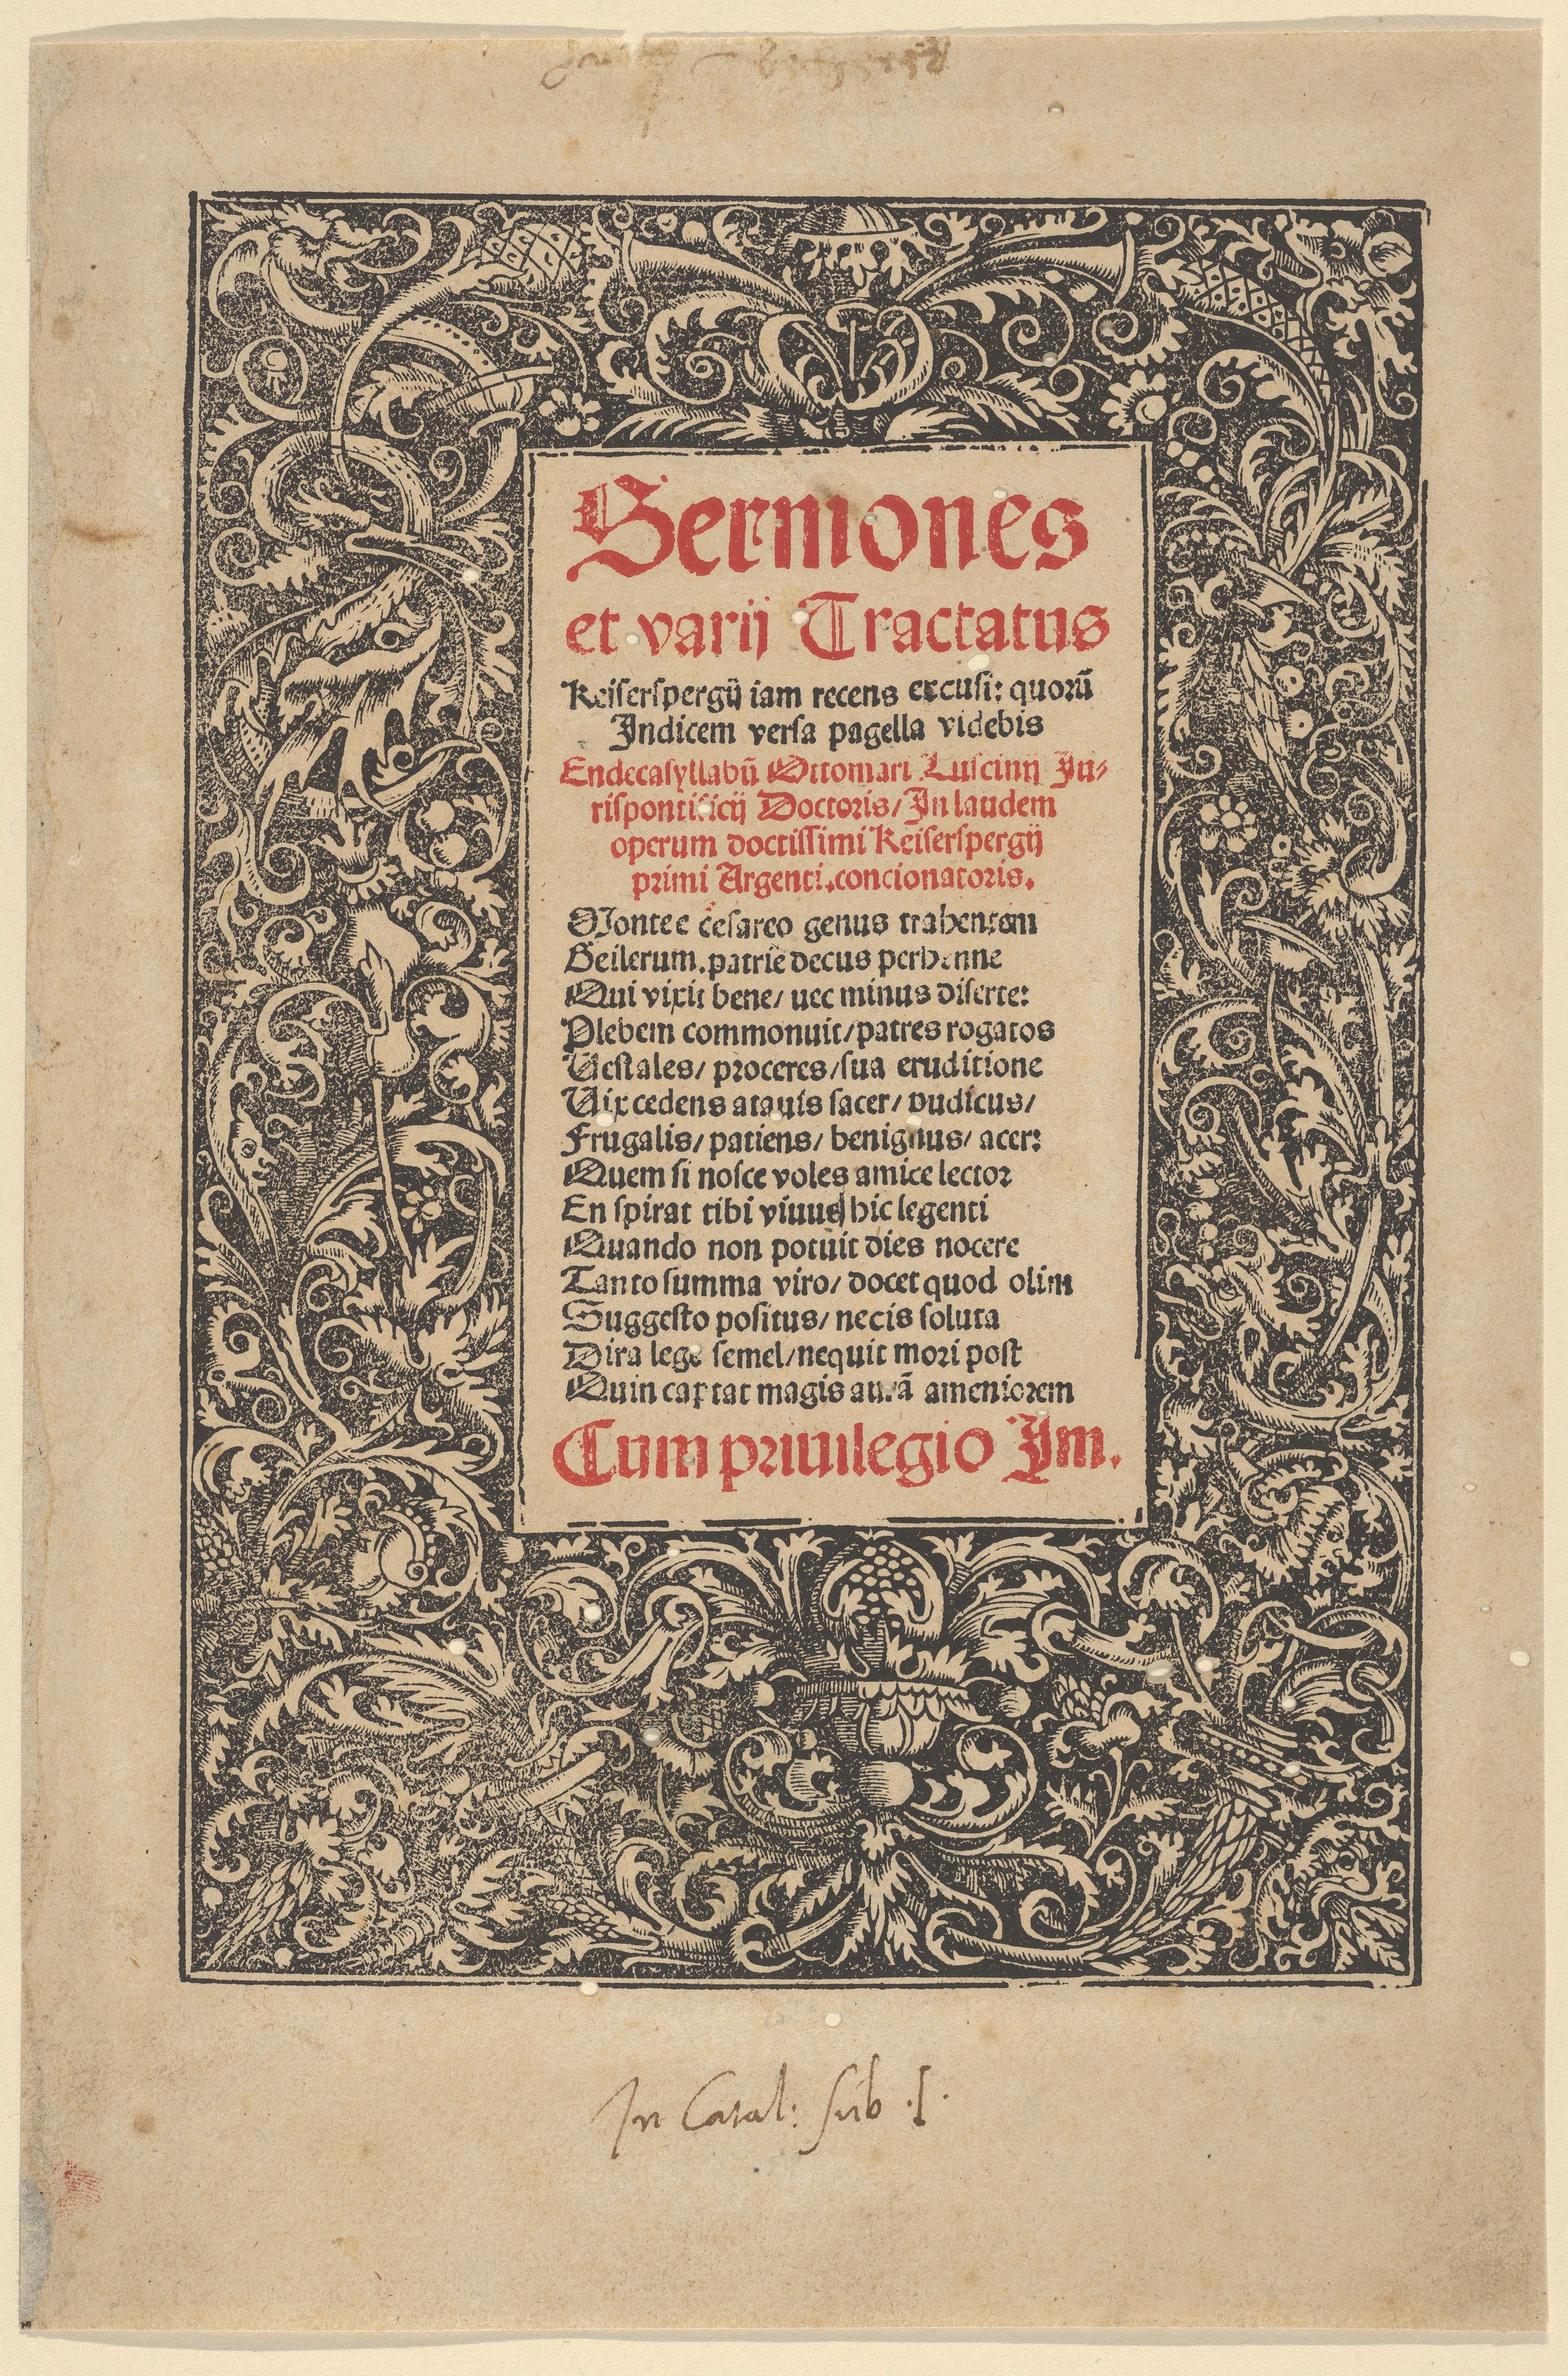 Sermones
et varij Tractatus
Keiserspergij iam recens excusi: quorū
Indicem versa pagella videbis
Endecasyllabū Ottomari Luscinij Ju-
rispontificij Doctoris/ In laudem
operum doctissimi Keiserspergij
primi Argenti.concionatoris.
Monte e cesareo genus trahentem
Geilerum.patrie decus perhenne
Qui vixit bene/ nec minus diserte:
Plebem commonuit/patres rogatos
Vestales/ proceres/sua eruditione
Vix cedens atauis sacer/ pudicus/
Frugalis/ patiens/ benignus/ acer:
Quem si nosce voles amice lector
En spirat tibi viuus hic legenti
Quando non potuit dies nocere
Tanto summa viro/ docet quod olim
Suggesto positus/ necis soluta
Dira lege semel/nequit mori post
Quin captat magis aurā ameniorem
Cum priuilegio Im.
In Catal: sub .I.